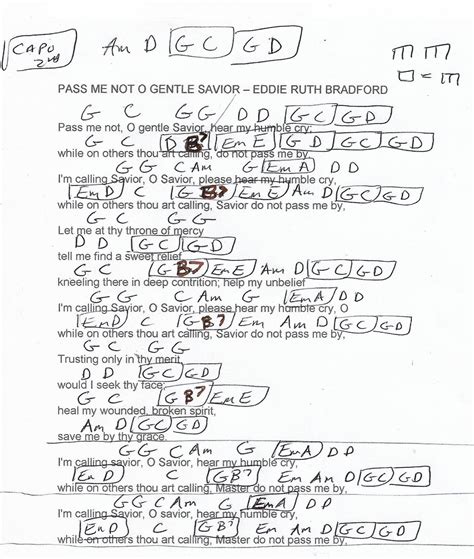 CAPO 2nd Am D G C G D m m
□ = m
PASS ME NOT O GENTLE SAVIOR – EDDIE RUTH BRADFORD
G C G G D D G C G D
Pass me not, O gentle Savior, hear my humble cry;
G C D B7 Em E G D G C G D
while on others thou art calling, do not pass me by.
G G C Am G Em A D D
I'm calling Savior, O Savior, please hear my humble cry,
Em D C G B7 Em E Am D G C G D
while on others thou art calling, Savior do not pass me by,
G C G G
Let me at thy throne of mercy
D D G C G D
tell me find a sweet relief
G C G B7 Em E Am D G C G D
kneeling there in deep contrition; help my unbelief
G G C Am G Em A D D
I'm calling Savior, O Savior, please hear my humble cry, O
Em D C G B7 Em Am D G C G D
while on others thou art calling, Savior do not pass me by,
G C G G
Trusting only in thy merit,
D D G C G D
would I seek thy face;
G C G B7 Em E
heal my wounded, broken spirit,
Am D G C G D
save me by thy grace.
G G C Am G Em A D D
I'm calling Savior, O Savior, hear my humble cry,
Em D C G B7 Em Am D G C G D
while on others thou art calling, Master do not pass me by,
G G C Am G Em A D D
I'm calling Savior, O savior, hear my humble cry,
Em D C G B7 Em Am D G C G D
while on others thou art calling, Master do not pass me by,